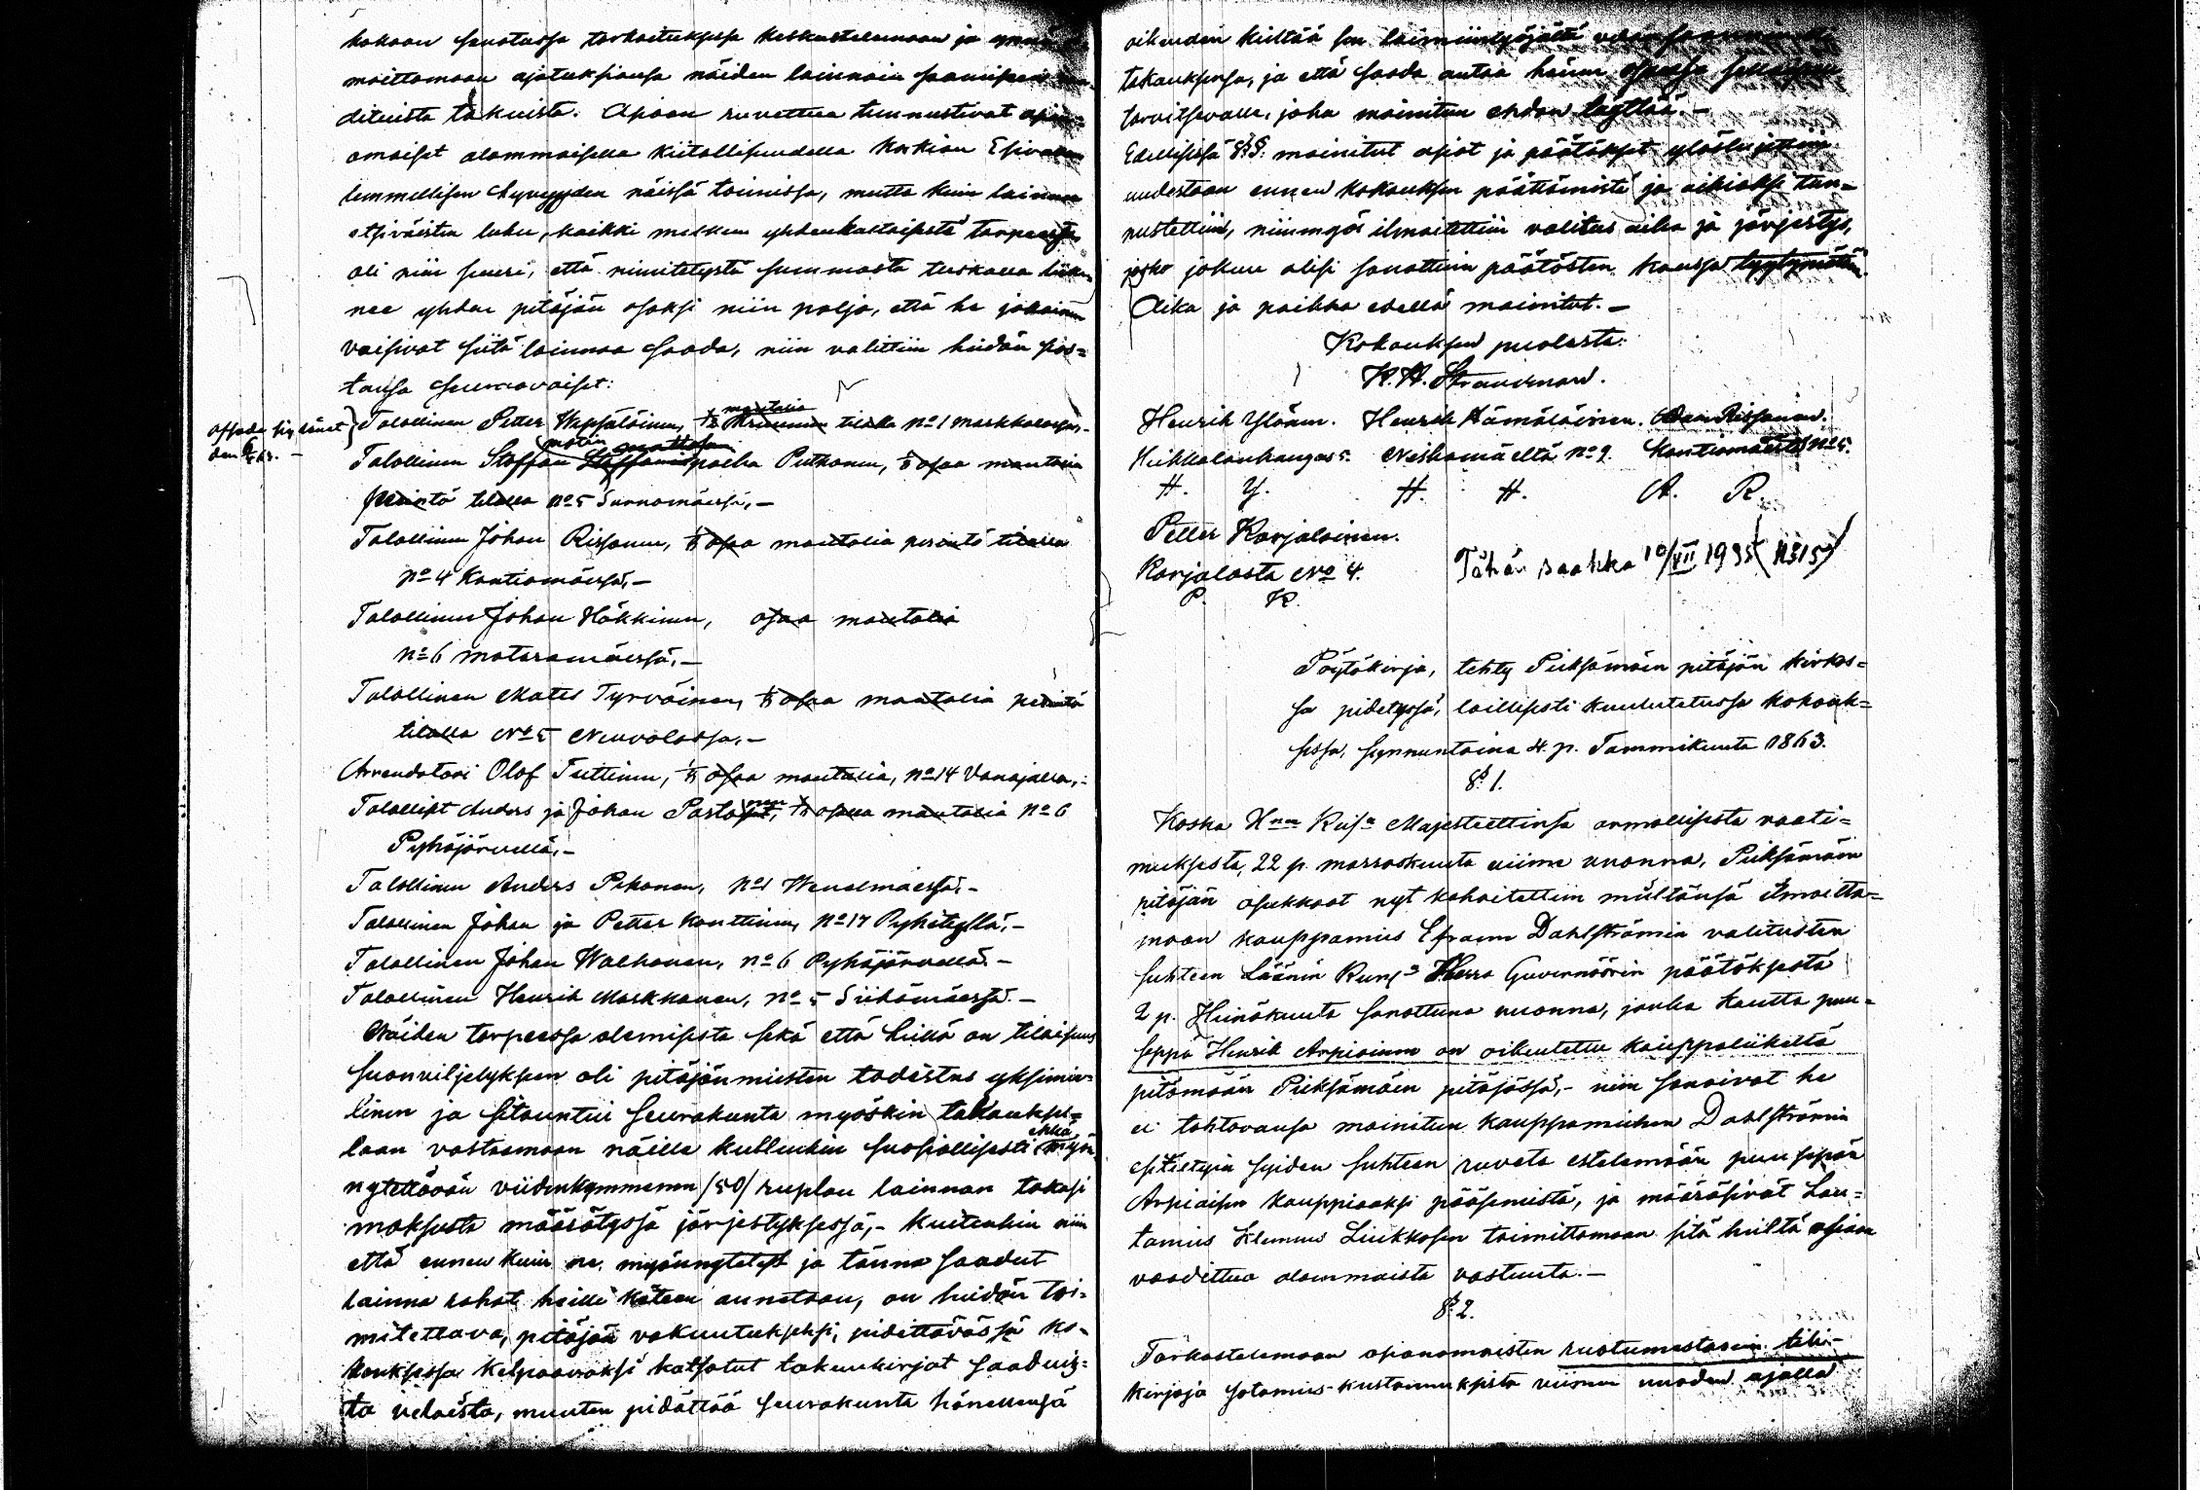 kokoon sanotussa tarkoituksessa keskustelemaan ja
moittamaan ajatuksiansa näiden lainain saamisesta
dituista takuista. Asiaan ruvettua tunnustivat asian=
omaiset alammaisella kiitollisuudella korkian Esivallan
lemmellisen hyvyyden näissä toimissa, mutta kuin lainan
etsiväisten luku, kaikki melkein yhdenkaltaisesta tarpeesta
oli niin suuri, että nimitetystä summasta tuskalla liike=
nee yhden pitäjän osaksi niin paljo, että he jokainen
voisivat siitä lainaa saada, niin valittiin heidän sias=
tansa seuraavaiset:
Talollinen Petter Hypsäläinen, tila No 1 Markkala
Talollinen Staffan Staffaninpoika Putkonen, 1/3 osaa mantalia
perintö tilalla No 5 Surnamäessä,—
Talollinen Johan Rissanen, osaa mantalia perintö tilalla
No 4 Kontiomäessä,—
Talollinen Johan Häkkinen, osaa mantalia
No 6 Mataramäessä,—
Talollinen Mats Tyrväinen, osaa mantalia perintö
tilalla No 5 Neuvolassa,—
Arrendatori Olof Tuttinen, osaa mantalia, No 14 Vanajalla,—
Talolliset Anders ja Johan Partaset, osalla mantalia No 6
Pyhäjärvellä,—
Talollinen Anders Pekonen, No 1 Wenelmäessä,—
Talollinen Johan ja Petter Konttinen, No 17 Pyhityllä,—
Talollinen Johan Walkonen, No 6 Pyhäjärvellä.—
Talollinen Henrik Markkanen, No 5 Siikämäessä.—
Näiden tarpeessa olemisesta sekä että heillä on tilaisuus
suonviljelykseen oli pitäjänmiesten todistus yksimie=
linen ja sitountui seurakunta myöskin takauksel=
laan vastaamaan näille kullenkin suosiollisesti ehkä myön
nytettävän viidenkymmenen /50/ ruplan lainnan takasi
maksusta määrätyssä järjestyksessä,— kuitenkin niin
että ennen kuin ne, myönnytetyt ja tänne saadut
lainna rahat heille käteen annetaan, on heidän toi=
mitettava, pitäjän vakuutukseksi, pidettävässä ko=
kouksessa kelpaavaksi katsotut takuukirjat saaduis=
ta veloista, muuten pidättää seurakunta hänellensä
oikeuden kieltää sen laiminlyöjältä
takauksensa, ja että saada antaa hänen osansa
tarvitsevalle, joka mainitun ehdon täyttää.—
Edellisissä §§: mainitut asiat ja päätökset ylösluettiin
uudestaan ennen kokouksen päättämistä ja oikiaksi tun=
nustettiin, niinmyös ilmoitettiin valitus aika ja järjestys,
josko jokuu olisi sanottuin päätösten kanssa tyytymätön.
Aika ja paikka edellä mainitut.—
Kokouksen puolesta:
K. H. Strandman.
Henrik Ylönen. Henrik Hämäläinen. Adam Rissanen.
Heikkalankangas 5. Neikamäeltä No 9. Kontiomäestä No 5.
H. Y. H. H. A. R.
Petter Karjalainen.
Karjalasta No 4.
P. K.
Tähän saakka 10/VII 1935
Pöytäkirja, tehty Pieksämäen pitäjän kirkos=
sa pidetyssä, laillisesti kuulutetussa kokouk=
sessa, Synnuntaina 4. p. Tammikuuta 1863.
§ 1.
Koska Hnen Keisn Majesteettinsa armollisesta vaati=
muksesta, 22 p. marraskuuta viime vuonna, Pieksämäen
pitäjän asukkaat nyt kehoitettiin mieltänsä ilmoitta=
maan kauppamies Efraim Dahlströmin valitusten
suhteen Läänin Kuvn Herra Guvernöörin päätöksestä
2 p. Heinäkuuta sanottuna vuonna, jonka kautta puu=
seppä Henrik Arpiainen on oikeutettu kauppaliikettä
pitämään Pieksämäen pitäjässä,— niin sanoivat he
ei tahtovansa mainitun kauppamiehen Dahlströmin
esitettyin syiden suhteen ruveta estelemään puu sepän
Arpiaisen kauppiaaksi pääsemistä, ja määräsivät Lau=
tamies Klemens Liukkosen toimittamaan sitä heiltä asiaan
vaadittua alammaista vastuuta.—
§ 2.
Tarkastelemaan asianomaisten ruotumestarein tili=
kirjoja sotamies-kustannuksista viimen vuoden ajalla